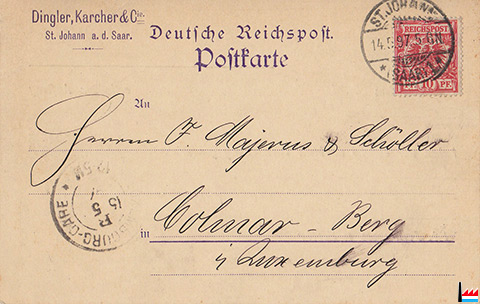 Dingler, Karcher & Cie.
St. Johann a. d. Saar.
Deutsche Reichspost.
Postkarte
ST. JOHANN
14.5.97. 5-6N.
(SAAR)
REICHSPOST
10 PF
An
Herren F. Majerus & Schöller
in Colmar-Berg
i/ Luxemburg
BURG-GARE
15
5